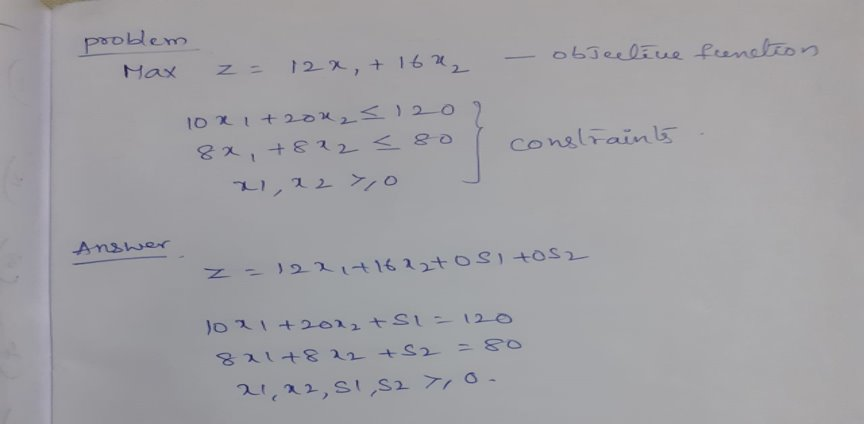 problem
Max z = 12x₁ + 16x₂ — objective function
10x1 + 20x₂ ≤ 120
8x₁ + 8x2 ≤ 80 } constraints.
x1, x2 ≥ 0
Answer.
z = 12x1 + 16x2 + 0S1 + 0S2
10x1 + 20x₂ + S1 = 120
8x1 + 8x2 + S2 = 80
x1, x2, S1, S2 ≥ 0.